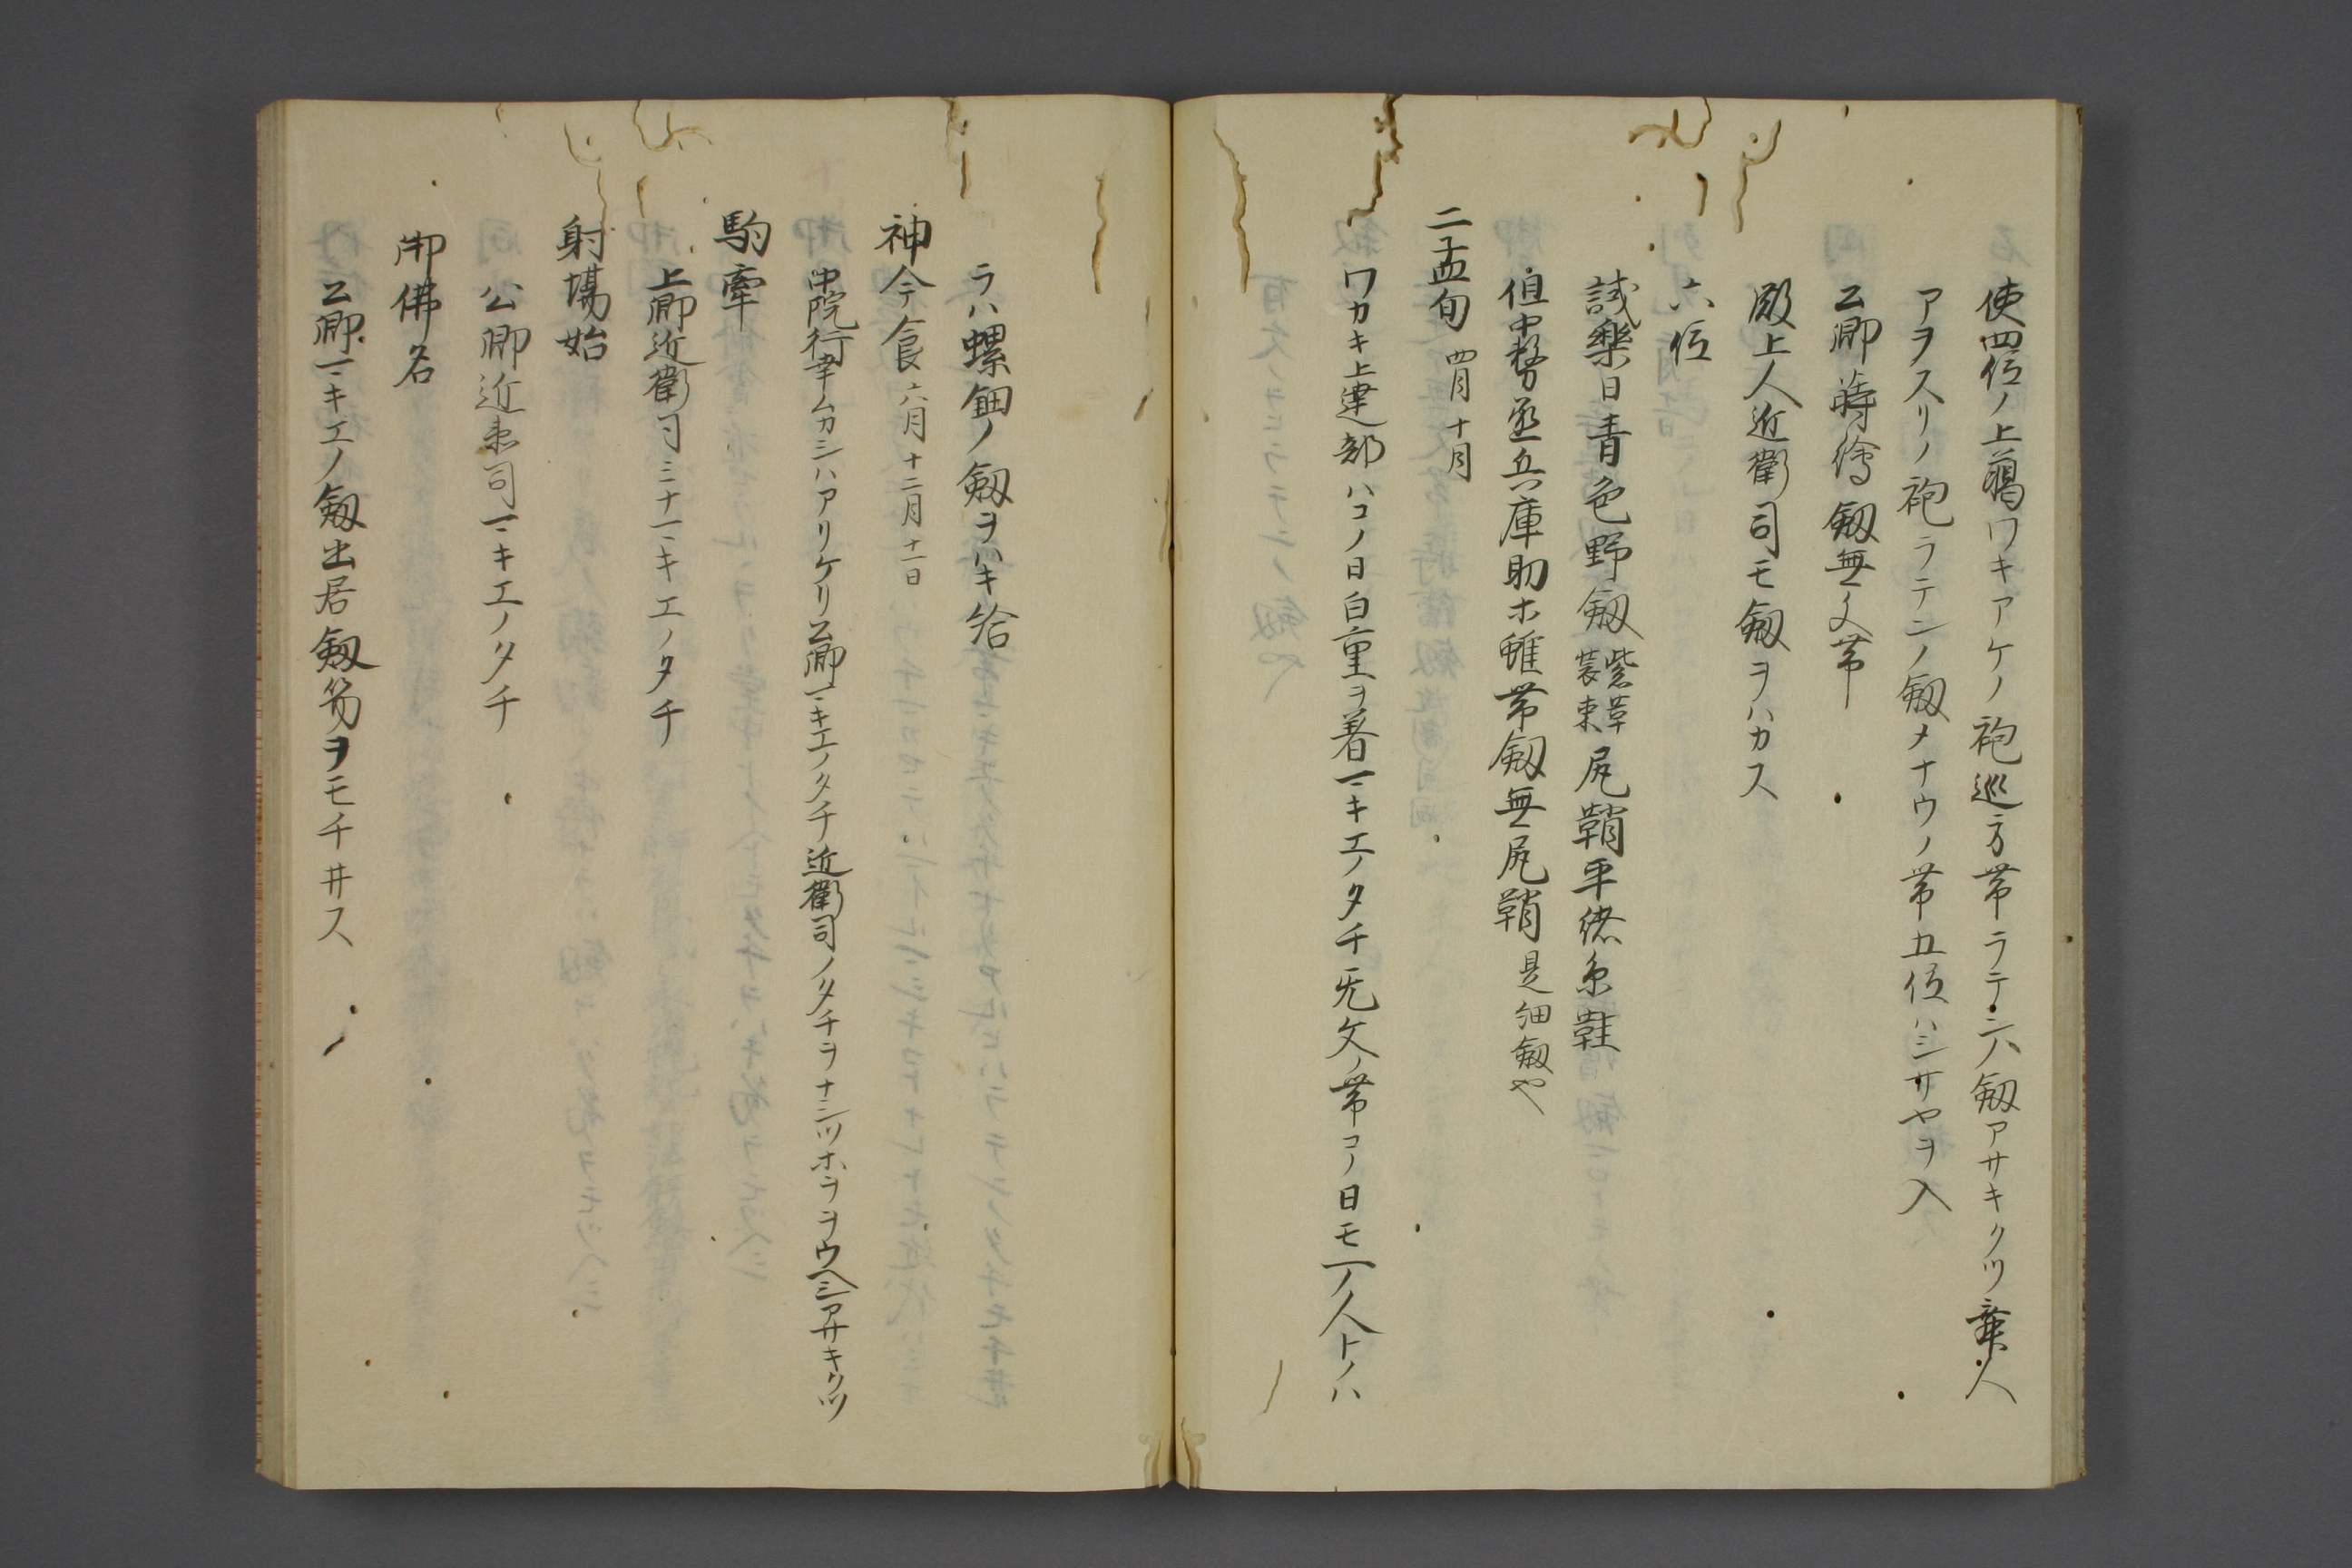 使四位ノ上﨟ワキアケノ袍巡方帯ラテンノ釼アサキクツ舞人
アヲスリノ袍ラテンノ釼メナウノ帯五位ハシサヤヲ入
公卿蒔繪釼無文帯
殿上人近衛司モ釼ヲハカス
六位
試樂日青色野釼紫革装束尻鞘平緒糸鞋
但中務丞兵庫助ホ雖帯釼無尻鞘是細釼や
二孟旬 四月十月
ワカキ上達部ハコノ日白重ヲ着マキエノタチ无文ノ帯コノ日モ一ノ人トノハ
ラハ螺鈿ノ釼ヲハキ給
神今食 六月十二月十一日
中院行幸ムカシハアリケリ公卿マキエノタチ近衛司ノタチヲナシツホヲヲウヘシアサキクツ
駒牽
上卿近衛司ミナマキエノタチ
射場始
公卿近衛司マキエノタチ
御佛名
公卿マキエノ釼出居釼笏ヲモチ井ス